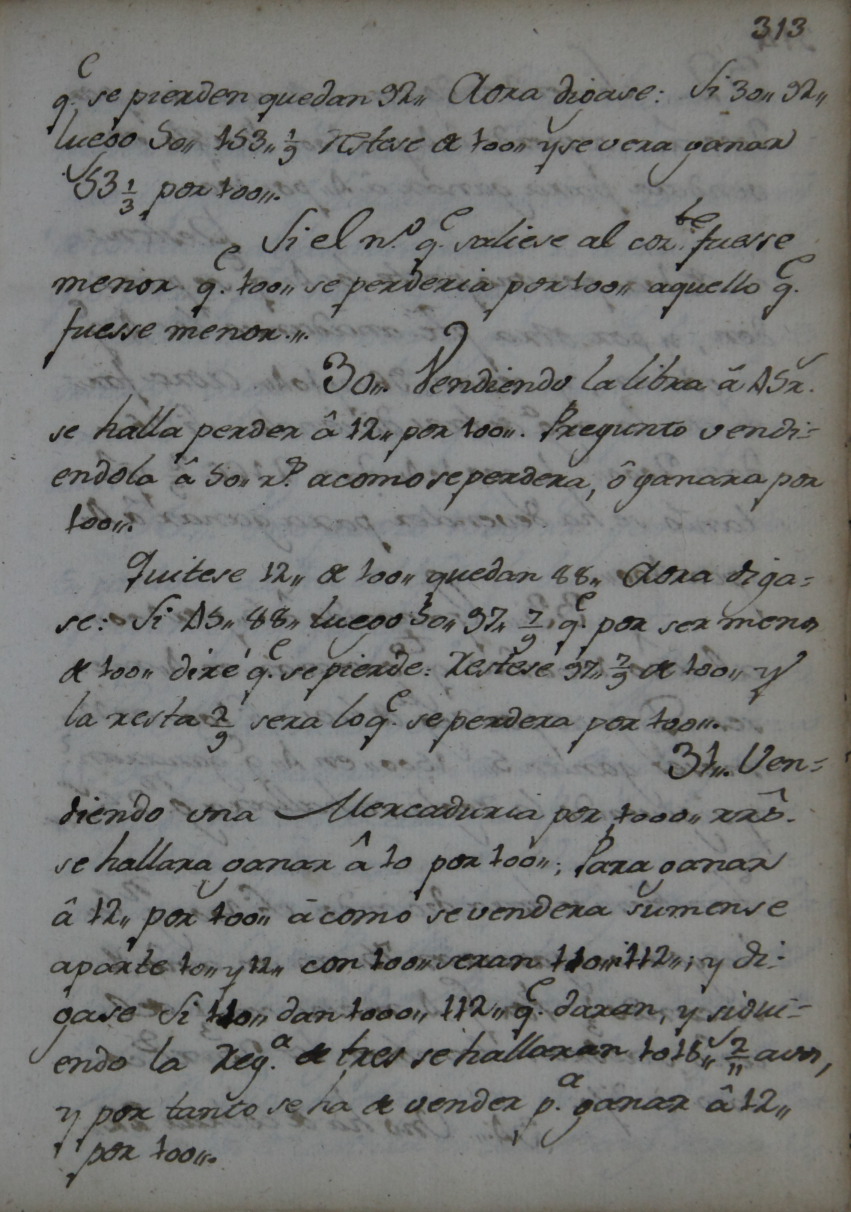 313
q.e se pierden quedan 92,, Aora digase: Si 30,, 92,,
luego 50,, 153,, 1/3 restese de 100,, y se vera ganar
53 1/3 por 100,,.
Si el n.o q.e saliese al cor.te fuesse
menor q.e 100,, se perderia por 100,, aquello q.e
fuesse menor.,,.
30,,. Vendiendo la libra â 45 r.
se halla perder â 12,, por 100,,. Pregunto vendi=
endola â 50,, r.s a como se perdera, ô ganara por
100,,.
Quitese 12,, de 100,, quedan 88,, Aora diga=
se: Si 45,, 88,, luego 50,, 97,, 7/9 q.e por ser menos
de 100,, diré q.e se pierde: Restese 97,, 7/9 de 100,, y
la resta 2/9 sera lo q.e se perdera por 100,,.
31,,. Ven=
diendo una Mercaduria por 1000,, rrs.
se hallara ganar â 10 por 100,,; Para ganar
â 12,, por 100,, â como se vendera sumense
aparte 10,, y 12,, con 100,, seran 110,, 112,,; y di=
gase Si 110,, dan 1000,, 112,, q.e daran, y sigui=
endo la Reg.a de tres se hallaran 1018,, 2/11 avos,
y por tanto se ha de vender p.a ganar â 12,,
por 100,,.